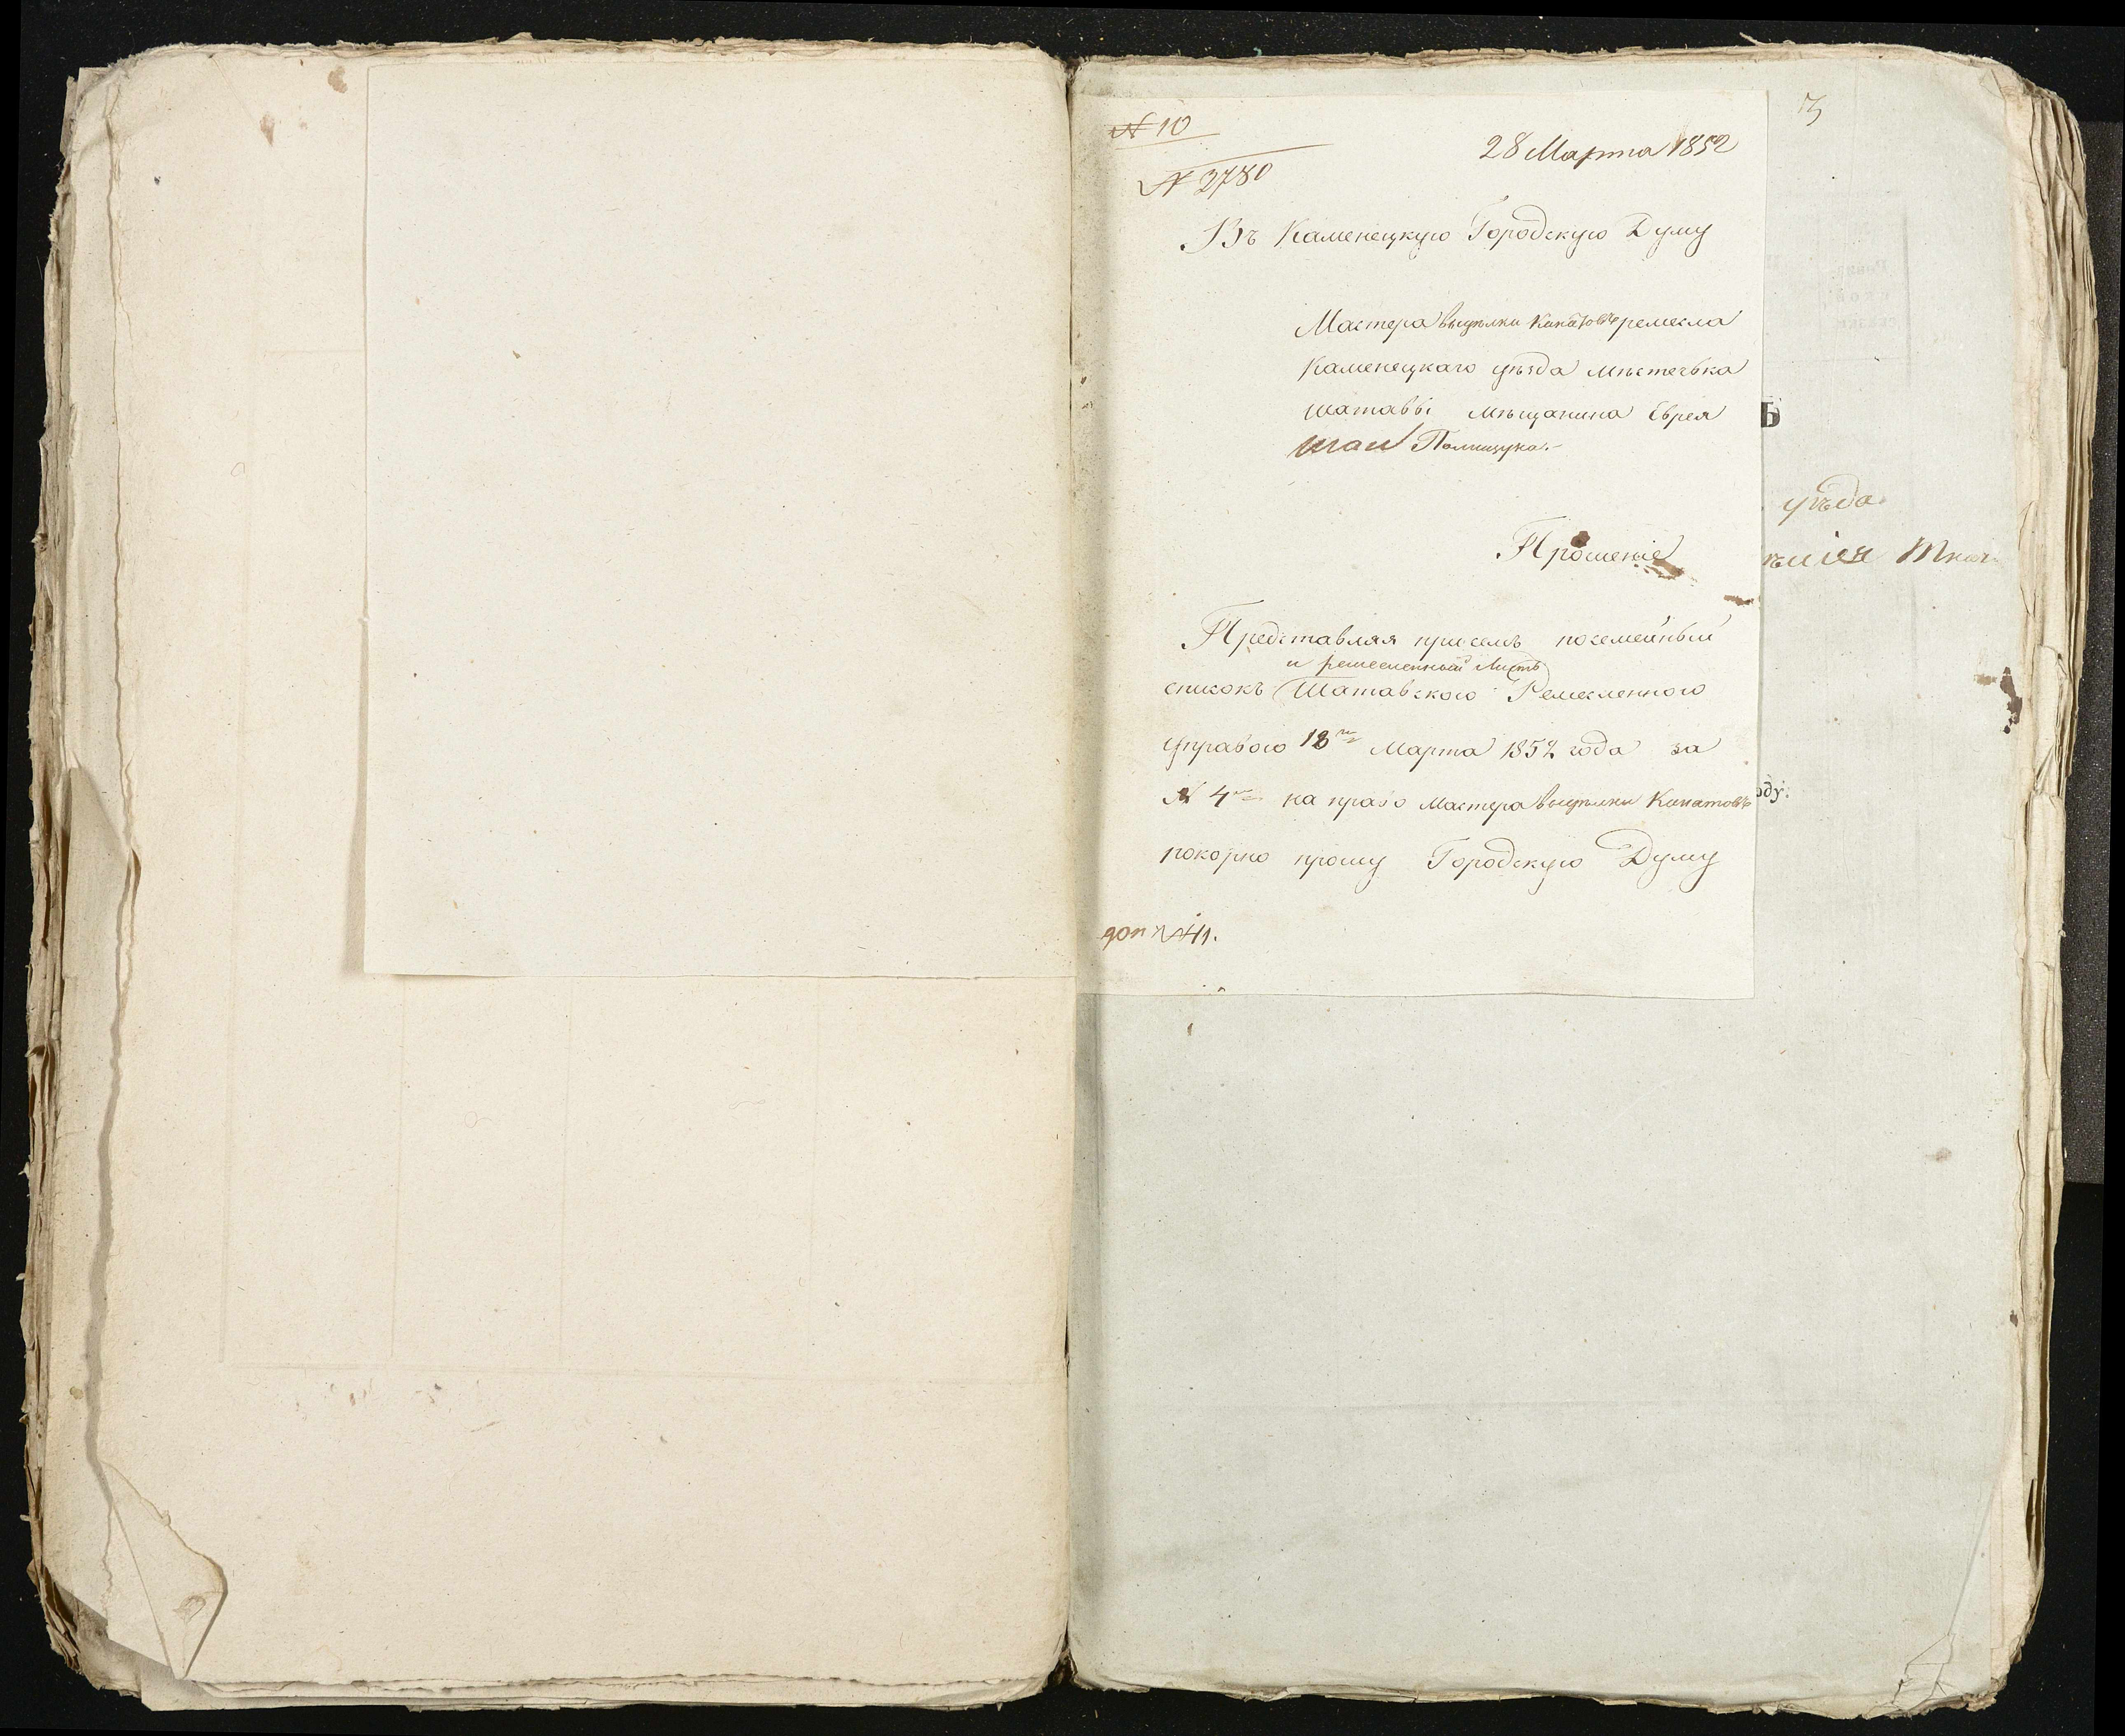 № 10
№ 2780
28 Марта 1852
Въ Каменецкую Городскую Думу
Мастера выделки Канатовъ ремесла
Каменецкаго уѣзда мѣстечька
шатавы мѣщанина Еврея
Прошеніе
Представляя присемъ посемейный
и ремесленный Листъ
списокъ Шатавского Ремесленного
управою 18го Марта 1852 года за
№ 4м на право Мастера выделки Канатовъ
покорно прошу Городскую Думу
№ 41.
3
Б
уѣзда
оду.